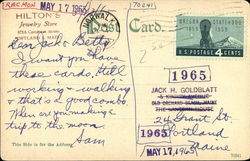 RAEMON
MAY 17 1965
70241
HILTON'S
Jewelry Store
PORTLAND 3, MAINE
Post Card.
OREGON STATEHOOD
1859 1959
U.S. POSTAGE 4 CENTS
Dear Jack & Betty,
I want you have
these cards. Still
working & walking
& that's a good combo.
When are you making
trip to the moon
Sam
1965
JACK H. GOLDBLATT
OLD ORCHARD BEACH, MAINE
24 Grant St.
Portland
Maine
MAY 17, 1965
This Side is for the Address